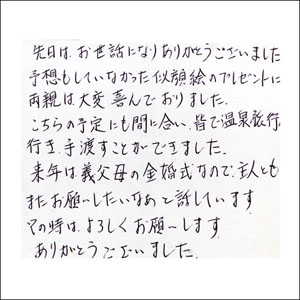 先日は、お世話になりありがとうございました
予想もしていなかった似顔絵のプレゼントに
両親は大変喜んでおりました。
こちらの予定にも間に合い、皆で温泉旅行
行き、手渡すことができました。
来年は義父母の金婚式なので、主人とも
またお願いしたいなあと話しています
その時は、よろしくお願いします
ありがとうございました。